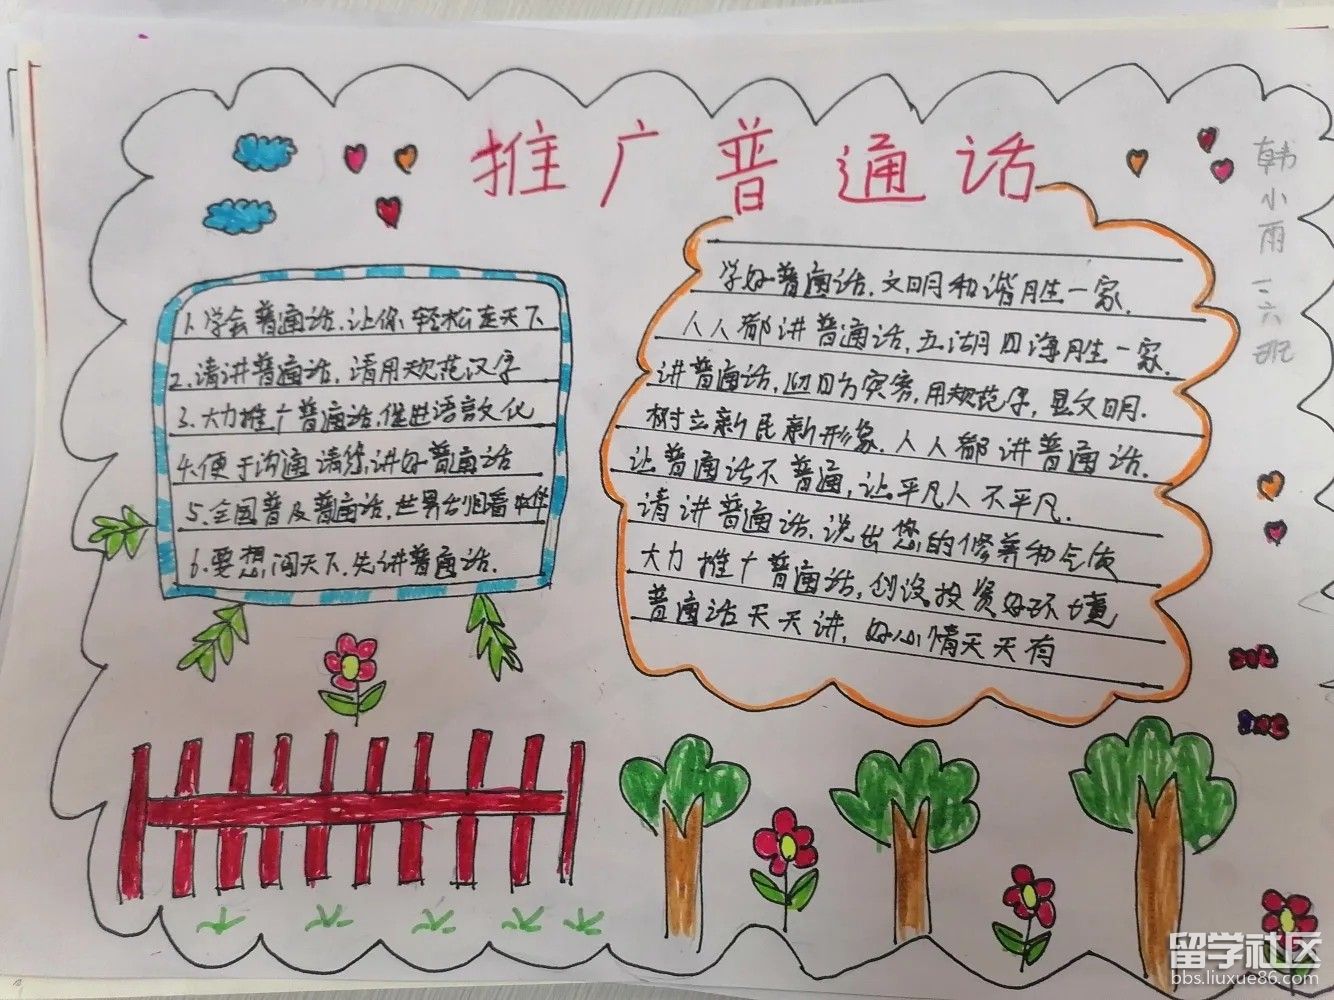 推广普通话
韩小雨 三六班
1.学会普通话.让你轻松走天下
2.请讲普通话,请用规范汉字
3.大力推广普通话.促进语言文化
4.便于沟通请您讲好普通话
5.全国普及普通话.世界
6.要想闯天下.先讲普通话.
学好普通话.文明和谐胜一家.
人人都讲普通话,五湖四海胜一家.
讲普通话,迎四方宾客,用规范字,显文明.
树立新民新形象.人人都讲普通话.
让普通话不普通,让平凡人不平凡.
请讲普通话.说出您的修养和气质
大力推广普通话,创设投资好环境
普通话天天讲,好心情天天有
留学社区
bbs.liuxue86.com